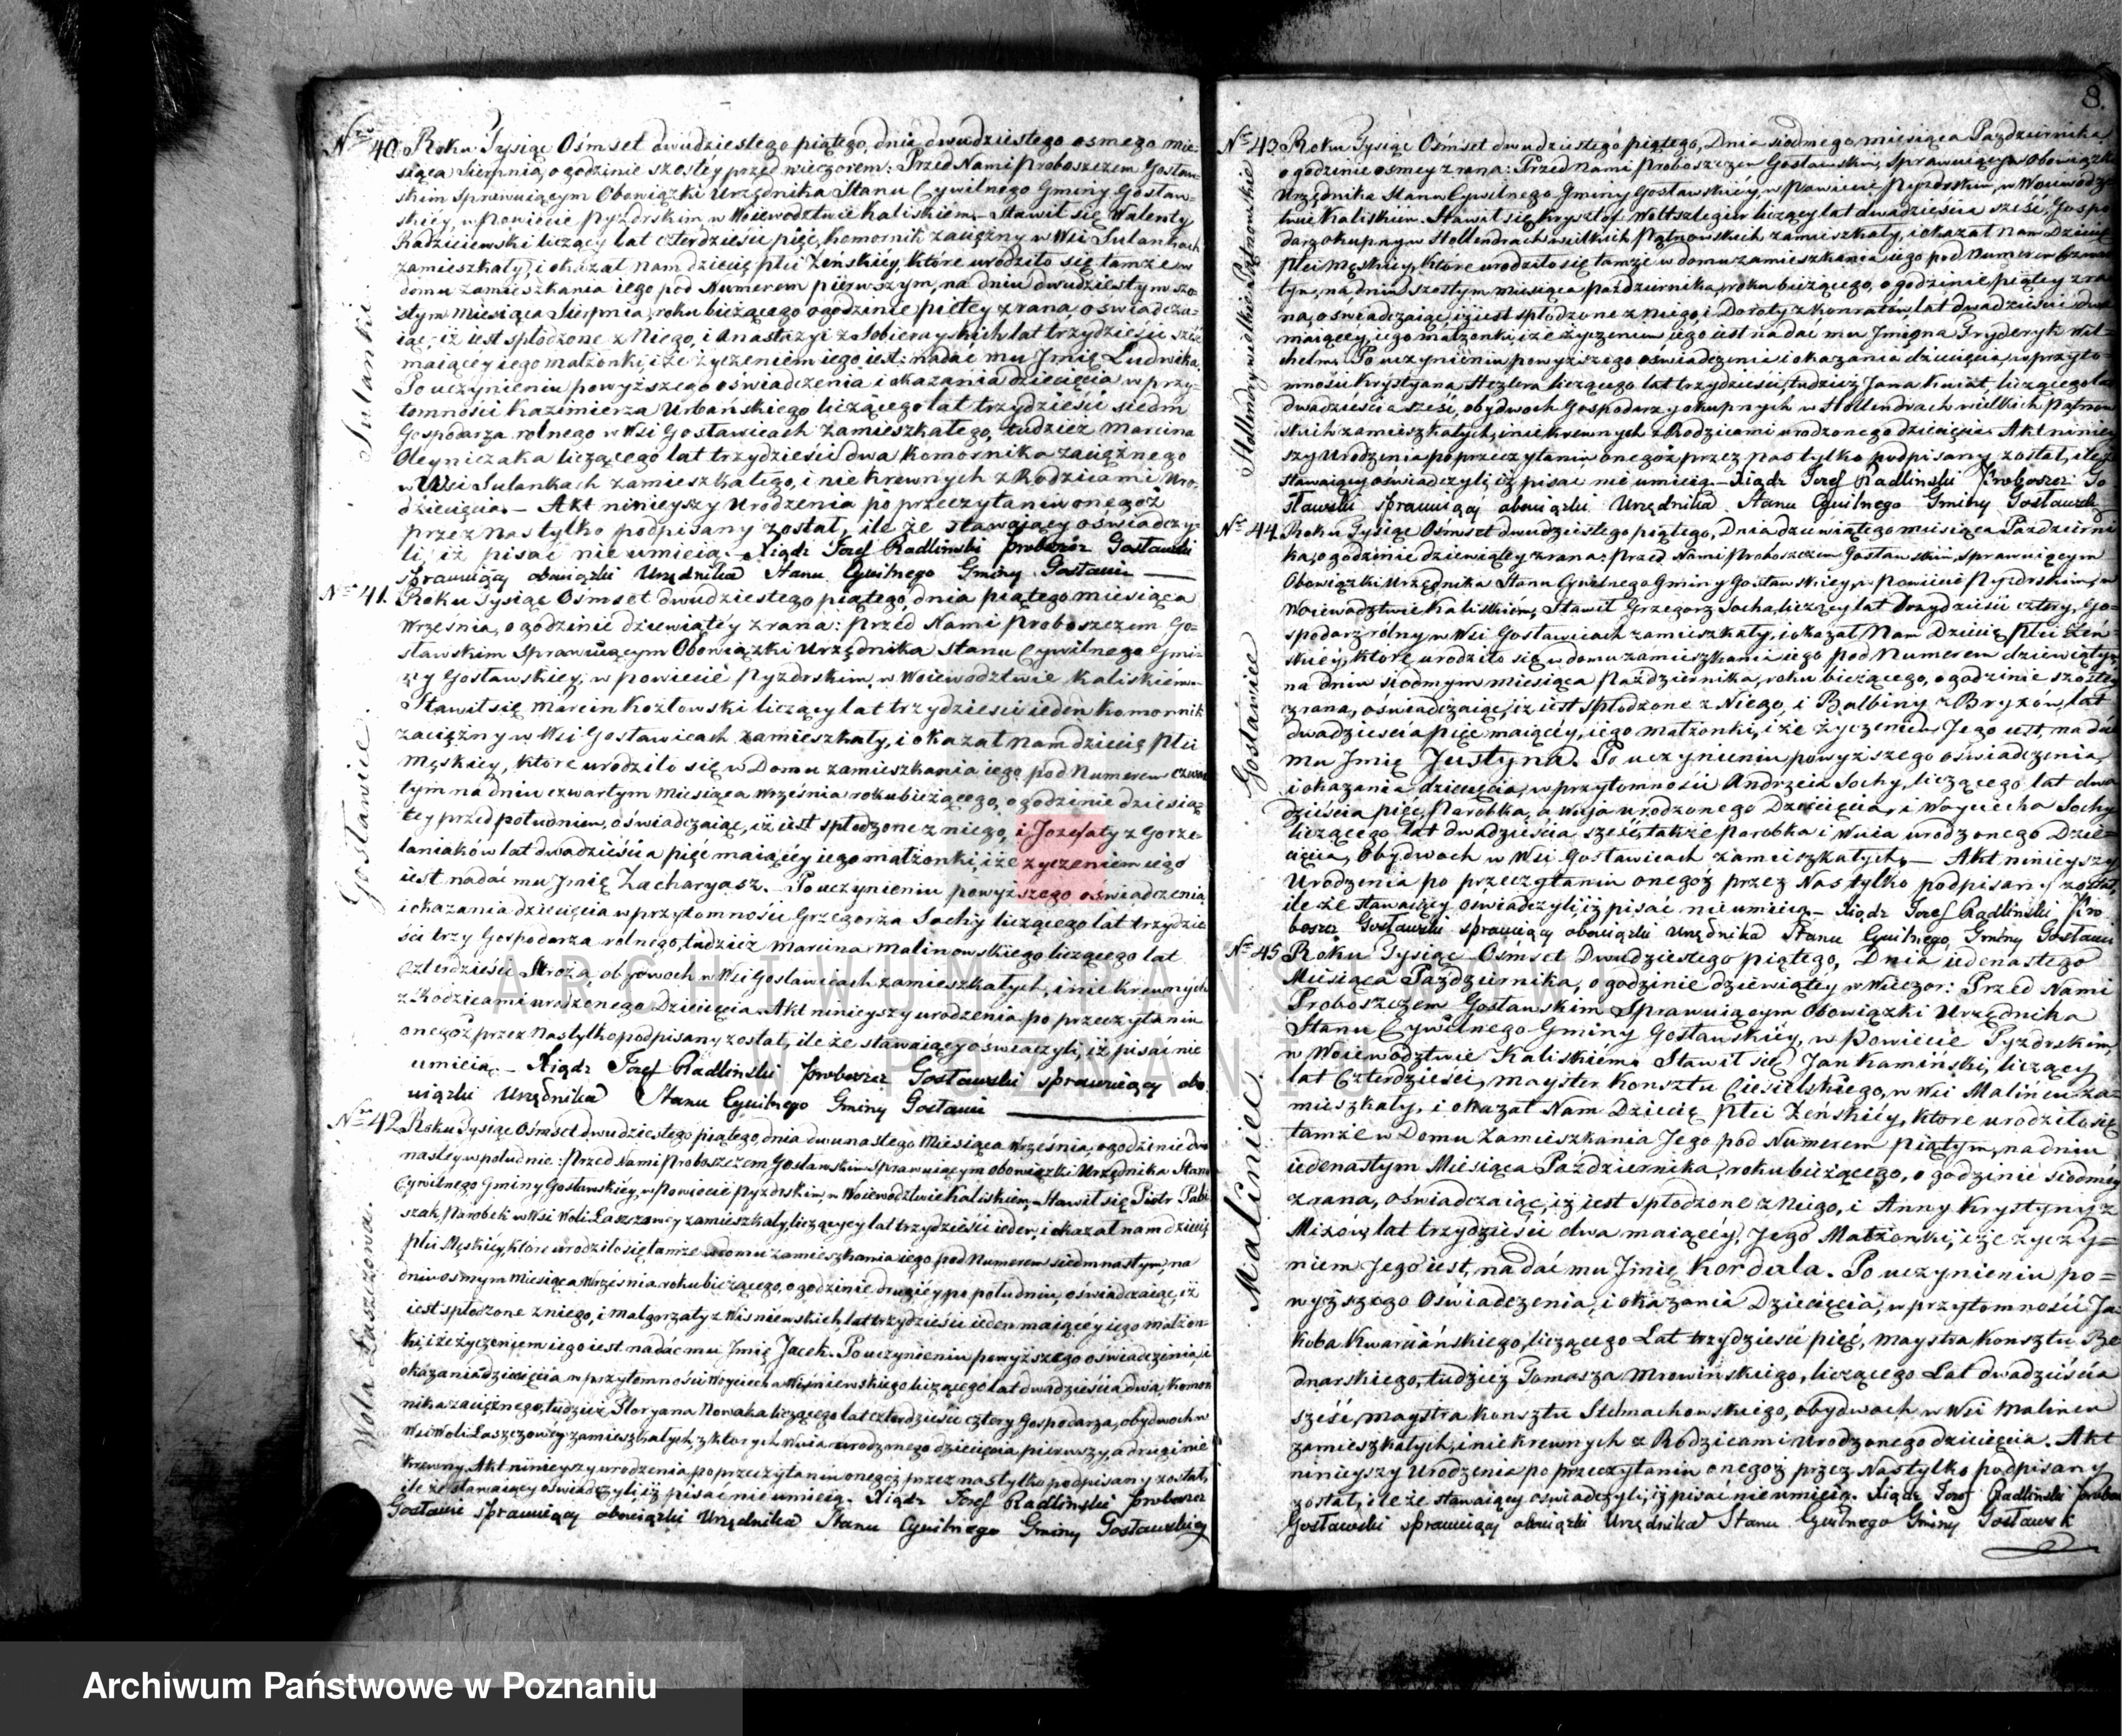 Nro 40. Roku Tysiąc Ośmset dwudziestego piątego, dnia dwudziestego osmego mie-
siąca Sierpnia, o godzinie szostéy przed wieczorem: Przed Nami Proboszczem Gosław-
skim Sprawuiącym Obowiązki Urzędnika Stanu Cywilnego Gminy Gosław-
skiéy, w Powiecie Pyzdrskim w Woiewodztwie Kaliskiem. Stawił się Walenty
Radzieiewski liczący lat czterdzieści pięć, Komornik zaciężny w Wsi Sulankach
zamieszkały, i okazał nam dziecię płci Żeńskiey, które urodziło się tamże w
domu zamieszkania iego pod Numerem pierwszym, na dniu dwudziestym szo-
stym Miesiąca Sierpnia, roku bieżącego o godzinie piątey z rana, oświadcza-
iąc, iż iest spłodzone z Niego, i Anastazyi z Sobierayskich lat trzydzieści sześć
maiącey iego małżonki, i że życzeniem iego iest: nadać mu Imię Ludwika.
Po uczynieniu powyższego oświadczenia i okazania dziecięcia w przy-
tomności Kazimierza Urbańskiego liczącego lat trzydzieści siedm
Gospodarza rolnego w Wsi Gosławicach zamieszkałego, tudzież Marcina
Oleyniczaka liczącego lat trzydzieści dwa Komornika zaciężnego
w Wsi Sulankach zamieszkałego, i niekrewnych z Rodzicami Uro.
dziecięcia. — Akt ninieyszy Urodzenia po przeczytaniu onegoż
przez Nas tylko podpisany został, ile że stawaiący oświadczy-
li, iż pisać nie umieią. Xiądz Jozef Radliński Proboszcz Gosławski
sprawuiący obowiązki Urzędnika Stanu Cywilnego Gminy Gosławic
Sulanki.
Nro 41. Roku Tysiąc Ośmset dwudziestego piątego, dnia piątego miesiąca
Września, o godzinie dziewiątéy z rana: przed Nami Proboszczem Go-
sławskim Sprawuiącym Obowiązki Urzędnika Stanu Cywilnego Gmi-
ny Gosławskiey, w Powiecie Pyzdrskim, w Woiewodztwie Kaliskiém.
Stawił się Marcin Kozłowski liczący lat trzydzieści ieden Komornik
zaciężny w Wsi Gosławicach zamieszkały, i okazał nam dziecię płci
Męskiey, które urodziło się w Domu zamieszkania iego pod Numerem czwar
tym na dniu czwartym Miesiąca Września roku bieżącego, o godzinie dziesią-
tey przed południem, oświadczaiąc, iż iest spłodzone z niego, i Jozefaty z Gorze-
laniaków lat dwadzieścia pięć maiącéy iego małżonki, i że życzeniem iego
iest nadać mu Imię Zacharyasz. — Po uczynieniu powyższego oświadczenia
i okazania dziecięcia w przytomności Grzegorza Sochy liczącego lat trzydzie
ści trzy Gospodarza rolnego, tudzież Marcina Malinowskiego liczącego lat
Czterdzieści Stroża, obydwoch w Wsi Gosławicach zamieszkałych, i niekrewnych
z Rodzicami urodzonego Dziecięcia. Akt ninieyszy urodzenia po przeczytaniu
onegoż przez Nas tylko podpisany został, ile że stawaiący oświadczyli, iż pisać nie
umieią. — Xiądz Jozef Radliński Proboszcz Gosławski sprawuiący obo
wiązki Urzędnika Stanu Cywilnego Gminy Gosławic
Gosławice.
Nro 42. Roku Tysiąc Ośmset dwudziestego piątego, dnia dwunastego Miesiąca Września, o godzinie dwu
nastey w południe: Przed Nami Proboszczem Gosławskim Sprawuiącym obowiązki Urzędnika Stanu
Cywilnego Gminy Gosławskiéy, w Powiecie Pyzdrskim, w Woiewodztwie Kaliskiem, Stawił się Piotr Pabi
szak, Parobek w Wsi Woli Łaszczowéy zamieszkały, liczący lat trzydzieści ieden, i okazał nam dziecię
płci Męskiéy, które urodziło się tamże w domu zamieszkania iego pod Numerem siedmnastym, na
dniu osmym Miesiąca Września roku bieżącego, o godzinie drugiéy po południu, oświadczaiąc, iż
iest spłodzone z niego, i Małgorzaty z Wiśniewskich lat trzydzieści ieden maiącéy iego małżon-
ki, i że życzeniem iego iest nadać mu Imię Jacek. Po uczynieniu powyższego oświadczenia, i
okazania dziecięcia w przytomności Woyciecha Wiśniewskiego liczącego lat dwadzieścia dwa, Komor
nika zaciężnego, tudzież Floryana Nowaka liczącego lat czterdzieści cztery Gospodarza, obydwoch w
Wsi Woli Łaszczowéy zamieszkałych, z których Wuia urodzonego dziecięcia pierwszy, a drugi nie
krewny. Akt ninieyszy urodzenia, po przeczytaniu onegoż przez nas tylko podpisany został,
ile że stawaiący oświadczyli, iż pisać nie umieią. Xiądz Jozef Radliński Proboszcz
Gosławic Sprawuiący obowiązki Urzędnika Stanu Cywilnego Gminy Gosławskiey
Wola Łaszczowa.
8.
Nro 43. Roku Tysiąc Ośmset dwudziestego piątego, Dnia siodmego miesiąca Pazdziernika
o godzinie osmey z rana: Przed Nami Proboszczem Gosławskim, Sprawuiącym Obowiązki
Urzędnika Stanu Cywilnego Gminy Gosławskiéy, w Powiecie Pyzdrskim, w Woiewodz-
twie Kaliskiem. Stawił się Krysztof Woltszlegier liczący lat dwadzieścia sześć, Gospo
darz okupny w Hollendrach wielkich Pątnowskich zamieszkały, i okazał Nam Dziecię
płci Męskiéy, które urodziło się tamże w domu zamieszkania iego pod Numerem
tym, na dniu szostym miesiąca października, roku bieżącego, o godzinie piątéy z ra
na, oświadczaiąc, iż iest spłodzone z Niego, i Doroty z Konratów, lat dwadzieścia dwa
maiącéy, iego małżonki, i że życzeniem iego iest nadać mu Imiona Fryderyk Wil-
chelm. Po uczynieniu powyższego oświadczenia i okazania dziecięcia, w przyto-
mności Krystyana Hezlera liczącego lat trzydzieści, tudzież Jana Kwiat, liczącego lat
dwadzieścia sześć, obydwoch Gospodarzy okupnych w Hollendrach wielkich Pątnow
skich zamieszkałych, i niekrewnych z Rodzicami urodzonego dziecięcia. Akt niniey
szy Urodzenia po przeczytaniu onegoż przez nas tylko podpisany został, ile że
stawaiący oświadczyli, iż pisać nie umieią. — Xiądz Jozef Radliński Proboszcz Go
sławski sprawuiący obowiązki Urzędnika Stanu Cywilnego Gminy Gosławsk
Hollendry wielkie Pątnowskie
Nro 44. Roku Tysiąc Ośmset dwudziestego piątego, Dnia dziewiątego miesiąca Pazdzierni
ka, o godzinie dziewiątéy z rana: Przed Nami Proboszczem Gosławskim, Sprawuiącym
Obowiązki Urzędnika Stanu Cywilnego Gminy Gosławskiey, w Powiecie Pyzdrskim, w
Woiewodztwie Kaliskiém, Stawił Grzegorz Socha, liczący lat Trzydzieści cztery, Go-
spodarz rólny w Wsi Gosławicach zamieszkały, i okazał Nam Dziecię płci Żeń-
skiéy, które urodziło się w domu zamieszkania iego pod Numerem dziewiątym
na dniu siodmym miesiąca Października, roku bieżącego, o godzinie szostéy
z rana, oświadczaiąc, iż iest spłodzone z Niego, i Balbiny z Bryzów, lat
dwadzieścia pięć maiącéy, iego małżonki, i że życzeniem Jego iest, nadać
mu Imię Justyna. Po uczynieniu powyższego oświadczenia,
i okazania dziecięcia, w przytomności Andrzeia Sochy, liczącego lat dwa
dzieścia pięć, Parobka, a Wuja urodzonego Dziecięcia, i Woyciecha Sochy
liczącego lat dwadzieścia sześć, także Parobka i Wuia urodzonego Dzie-
cięcia, Obydwoch w Wsi Gosławicach zamieszkałych. — Akt ninieyszy
Urodzenia po przeczytaniu onegoż przez Nas tylko podpisany został,
ile że stawaiący oświadczyli, iż pisać nie umieią. — Xiądz Jozef Radliński Pro
boszcz Gosławski sprawuiący obowiązki Urzędnika Stanu Cywilnego Gminy Gosławic
Gosławice
Nro 45. Roku Tysiąc Ośmset Dwudziestego piątego, Dnia iedenastego
Miesiąca Października, o godzinie dziewiątéy w Wieczor: Przed Nami
Proboszczem Gosławskim Sprawuiącym Obowiązki Urzędnika
Stanu Cywilnego Gminy Gosławskiéy, w Powiecie Pyzdrskim,
w Woiewodztwie Kaliskiém. Stawił się Jan Kamiński, liczący
lat Czterdzieści, Mayster Konsztu Ciesielskiego, w Wsi Malińcu za-
mieszkały, i okazał Nam Dziecię płci Żeńskiéy, ktore urodziło się
tamże w Domu Zamieszkania Jego pod Numerem piątym, na dniu
iedenastym Miesiąca Października, roku bieżącego, o godzinie siodméy
z rana, oświadczaiąc, iż iest spłodzone z Niego, i Anny Krystyny z
Mizów, lat trzydzieści dwa maiącéy, Jego Małżonki, i że życzy-
niem Jego iest, nadać mu Imię Kordula. Po uczynieniu po-
wyższego Oświadczenia, i okazania Dziecięcia, w przytomności Ja-
koba Kwarciańskiego, liczącego Lat trzydzieści pięć, Maystra Konsztu Be
dnarskiego, tudzież Tomasza Mrowińskiego, liczącego Lat dwadzieścia
sześć, Maystra Konsztu Stelmachowskiego, obydwoch w Wsi Malińcu
zamieszkałych, i niekrewnych z Rodzicami Urodzonego dziecięcia. Akt
ninieyszy Urodzenia po przeczytaniu onegoż przez Nas tylko podpisany
został, ile że stawaiący oświadczyli, iż pisać nie umieią. Xiądz Jozef Radliński Probos
Gosławski sprawuiący obowiązki Urzędnika Stanu Cywilnego Gminy Gosławsk
Maliniec.
ARCHIWUM PAŃSTWOWE
W POZNANIU
Archiwum Państwowe w Poznaniu